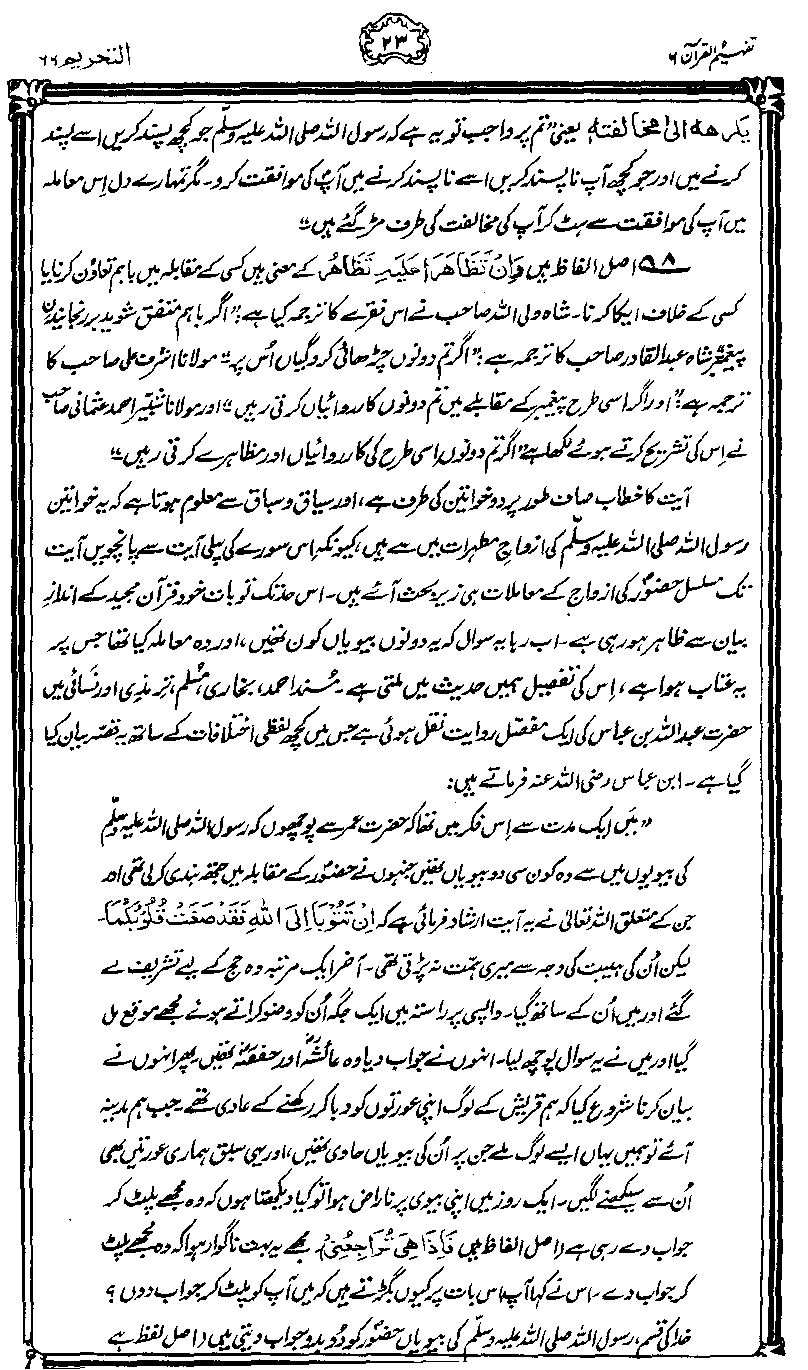 تفہیم القرآن ۶
۲۳
التحریم ۶۶
یکرھہ الیٰ مخالفتہ یعنی ”تم پر واجب تو یہ ہے کہ رسول اللہ صلی اللہ علیہ وسلم جو کچھ پسند کریں اسے پسند
کرنے میں اور جو کچھ آپ ناپسند کریں اسے ناپسند کرنے میں آپ کی موافقت کرو۔ مگر تمہارے دل اِس معاملہ
میں آپ کی موافقت سے ہٹ کر آپ کی مخالفت کی طرف مڑ گئے ہیں“
۸؎ اصل الفاظ ہیں وَاِنْ تَظَاھَرَا عَلَیْہِ تَظَاھُر کے معنی ہیں کسی کے مقابلہ میں باہم تعاون کرنا یا
کسی کے خلاف ایکا کرنا۔ شاہ ولی اللہ صاحب نے اس فقرے کا ترجمہ کیا ہے: ”اگر باہم متفق شوید بر رنجانیدن
پیغمبر“ شاہ عبدالقادر صاحب کا ترجمہ ہے: ”اگر تم دونوں چڑھائی کرو گیاں اُس پر“ مولانا اشرف علی صاحب کا
ترجمہ ہے: ”اور اگر اسی طرح پیغمبر کے مقابلے میں تم دونوں کارروائیاں کرتی رہیں“ اور مولانا شبیر احمد عثمانی صاحب
نے اِس کی تشریح کرتے ہوئے لکھا ہے ”اگر تم دونوں اسی طرح کی کارروائیاں اور مظاہرے کرتی رہیں“
آیت کا خطاب صاف طور پر دو خواتین کی طرف ہے، اور سیاق و سباق سے معلوم ہوتا ہے کہ یہ خواتین
رسول اللہ صلی اللہ علیہ وسلّم کی ازواجِ مطہرات میں سے ہیں، کیونکہ اس سورے کی پہلی آیت سے پانچویں آیت
تک مسلسل حضورؐ کی ازواج کے معاملات ہی زیر بحث آئے ہیں۔ اس حد تک تو بات خود قرآن مجید کے اندازِ
بیان سے ظاہر ہو رہی ہے۔ اب رہا یہ سوال کہ یہ دونوں بیویاں کون تھیں، اور وہ معاملہ کیا تھا جس پر
یہ عتاب ہوا ہے، اِس کی تفصیل ہمیں حدیث میں ملتی ہے۔ مُسند احمد، بخاری، مُسلم، ترمذی اور نَسائی میں
حضرت عبداللہ بن عباس کی ایک مفصّل روایت نقل ہوئی ہے جس میں کچھ لفظی اختلافات کے ساتھ یہ قصّہ بیان کیا
گیا ہے۔ ابن عباس رضی اللہ عنہ فرماتے ہیں:
”میَں ایک مدت سے اِس فکر میں تھا کہ حضرت عمر سے پوچھوں کہ رسول اللہ صلی اللہ علیہ وسلّم
کی بیویوں میں سے وہ کون سی دو بیویاں تھیں جنہوں نے حضورؐ کے مقابلہ میں جتھہ بندی کر لی تھی اور
جن کے متعلق اللہ تعالیٰ نے یہ آیت ارشاد فرمائی ہے کہ اِنْ تَتُوْبَا اِلَی اللّٰہِ فَقَدْ صَغَتْ قُلُوْبُکُمَا۔
لیکن اُن کی ہیبت کی وجہ سے میری ہمت نہ پڑتی تھی۔ آخر ایک مرتبہ وہ حج کے لیے تشریف لے
گئے اور میں اُن کے ساتھ گیا۔ واپسی پر راستہ میں ایک جگہ اُن کو وضو کراتے ہوئے مجھے موقع مل
گیا اور میں نے یہ سوال پوچھ لیا۔ انہوں نے جواب دیا وہ عائشہؓ اور حفصہؓ تھیں۔ پھر انہوں نے
بیان کرنا شروع کیا کہ ہم قریش کے لوگ اپنی عورتوں کو دبا کر رکھنے کے عادی تھے۔ جب ہم مدینہ
آئے تو ہمیں یہاں ایسے لوگ ملے جن پر اُن کی بیویاں حاوی تھیں، اور یہی سبق ہماری عورتیں بھی
اُن سے سیکھنے لگیں۔ ایک روز میں اپنی بیوی پر ناراض ہوا تو کیا دیکھتا ہوں کہ وہ مجھے پلٹ کر
جواب دے رہی ہے (اصل الفاظ ہیں فَاِذَا ھِیَ تُرَاجِعُنِیْ)۔ مجھے یہ بہت ناگوار ہوا کہ وہ مجھے پلٹ
کر جواب دے۔ اس نے کہا آپ اس بات پر کیوں بگڑتے ہیں کہ میں آپ کو پلٹ کر جواب دوں؟
خدا کی قسم، رسول اللہ صلی اللہ علیہ وسلّم کی بیویاں حضورؐ کو دُو بدو جواب دیتی ہیں (اصل لفظ ہے